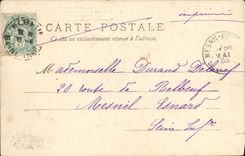 imprimé
CARTE POSTALE
Ce côté est exclusivement réservé à l'adresse.
MESNIL-ES
Mademoiselle Durand Delanef
20 route de Belbeuf
Mesnil-Esnard
Seine Infre